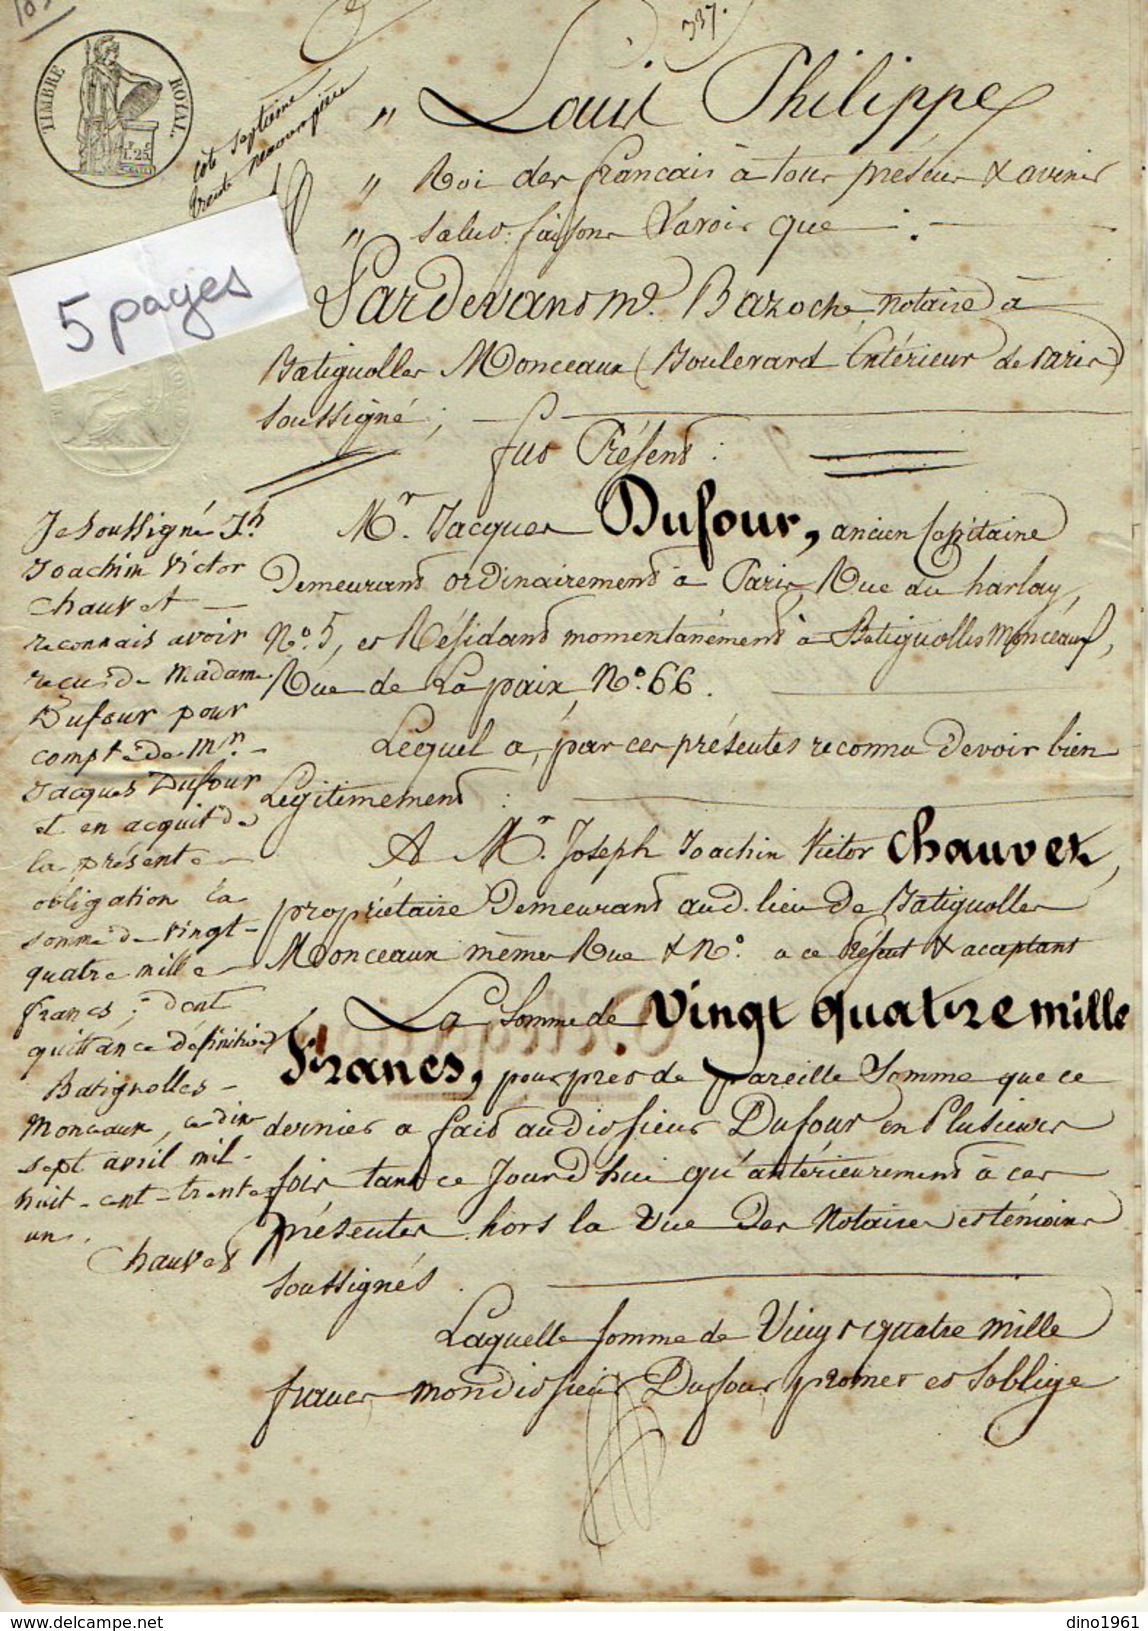 337.
TIMBRE ROYAL.
1.25
cote septième
trente neuvième pièce
5 pages
" Louis Philippe
" Roi des français à tous présens & avenir
" salut : faisons savoir que
Pardevant Me. Bazoche, notaire à
Batignolles Monceaux (Boulevard Extérieur de Paris)
soussigné ;
fut Présent :
Mr. Jacques Dufour, ancien Capitaine
Demeurant ordinairement à Paris, Rue du harlay,
No. 5, et Résidant momentanément à Batignolles Monceaux,
Rue de La paix, No. 66.
Lequel a, par ces présentes reconnu devoir bien
Légitimement :
A Mr. Joseph Joachin Victor Chauvet,
propriétaire Demeurant aud. lieu De Batignolles
Monceaux même Rue & No. à ce Présent & acceptant
La Somme de Vingt quatre mille
Francs, pour prêt de pareille Somme que ce
dernier a fait audit sieur Dufour en Plusieurs
fois tant ce Jourd'hui qu'antérieurement à ces
présentes hors la vue Des Notaires et témoins
soussignés.
Laquelle somme de Vingt quatre mille
francs, mondit sieur Dufour, promet et s'oblige
Je soussigné Jh.
Joachin Victor
Chauvet
reconnais avoir
reçu de Madame
Dufour pour
compte de Mr.
Jacques Dufour
et en acquit de
la présente
obligation la
somme de vingt-
quatre mille
francs ; dont
quittance définitive
Batignolles-
Monceaux, ce dix
sept avril mil-
huit-cent-trente
un.
Chauvet
www.delcampe.net
dino1961